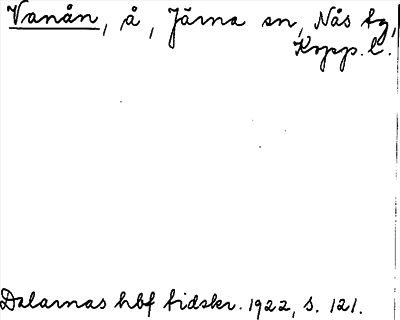 Vanån, å, Järna sn, Nås tg,
Kopp. l.
Dalarnas hbf tidskr. 1922, s. 121.